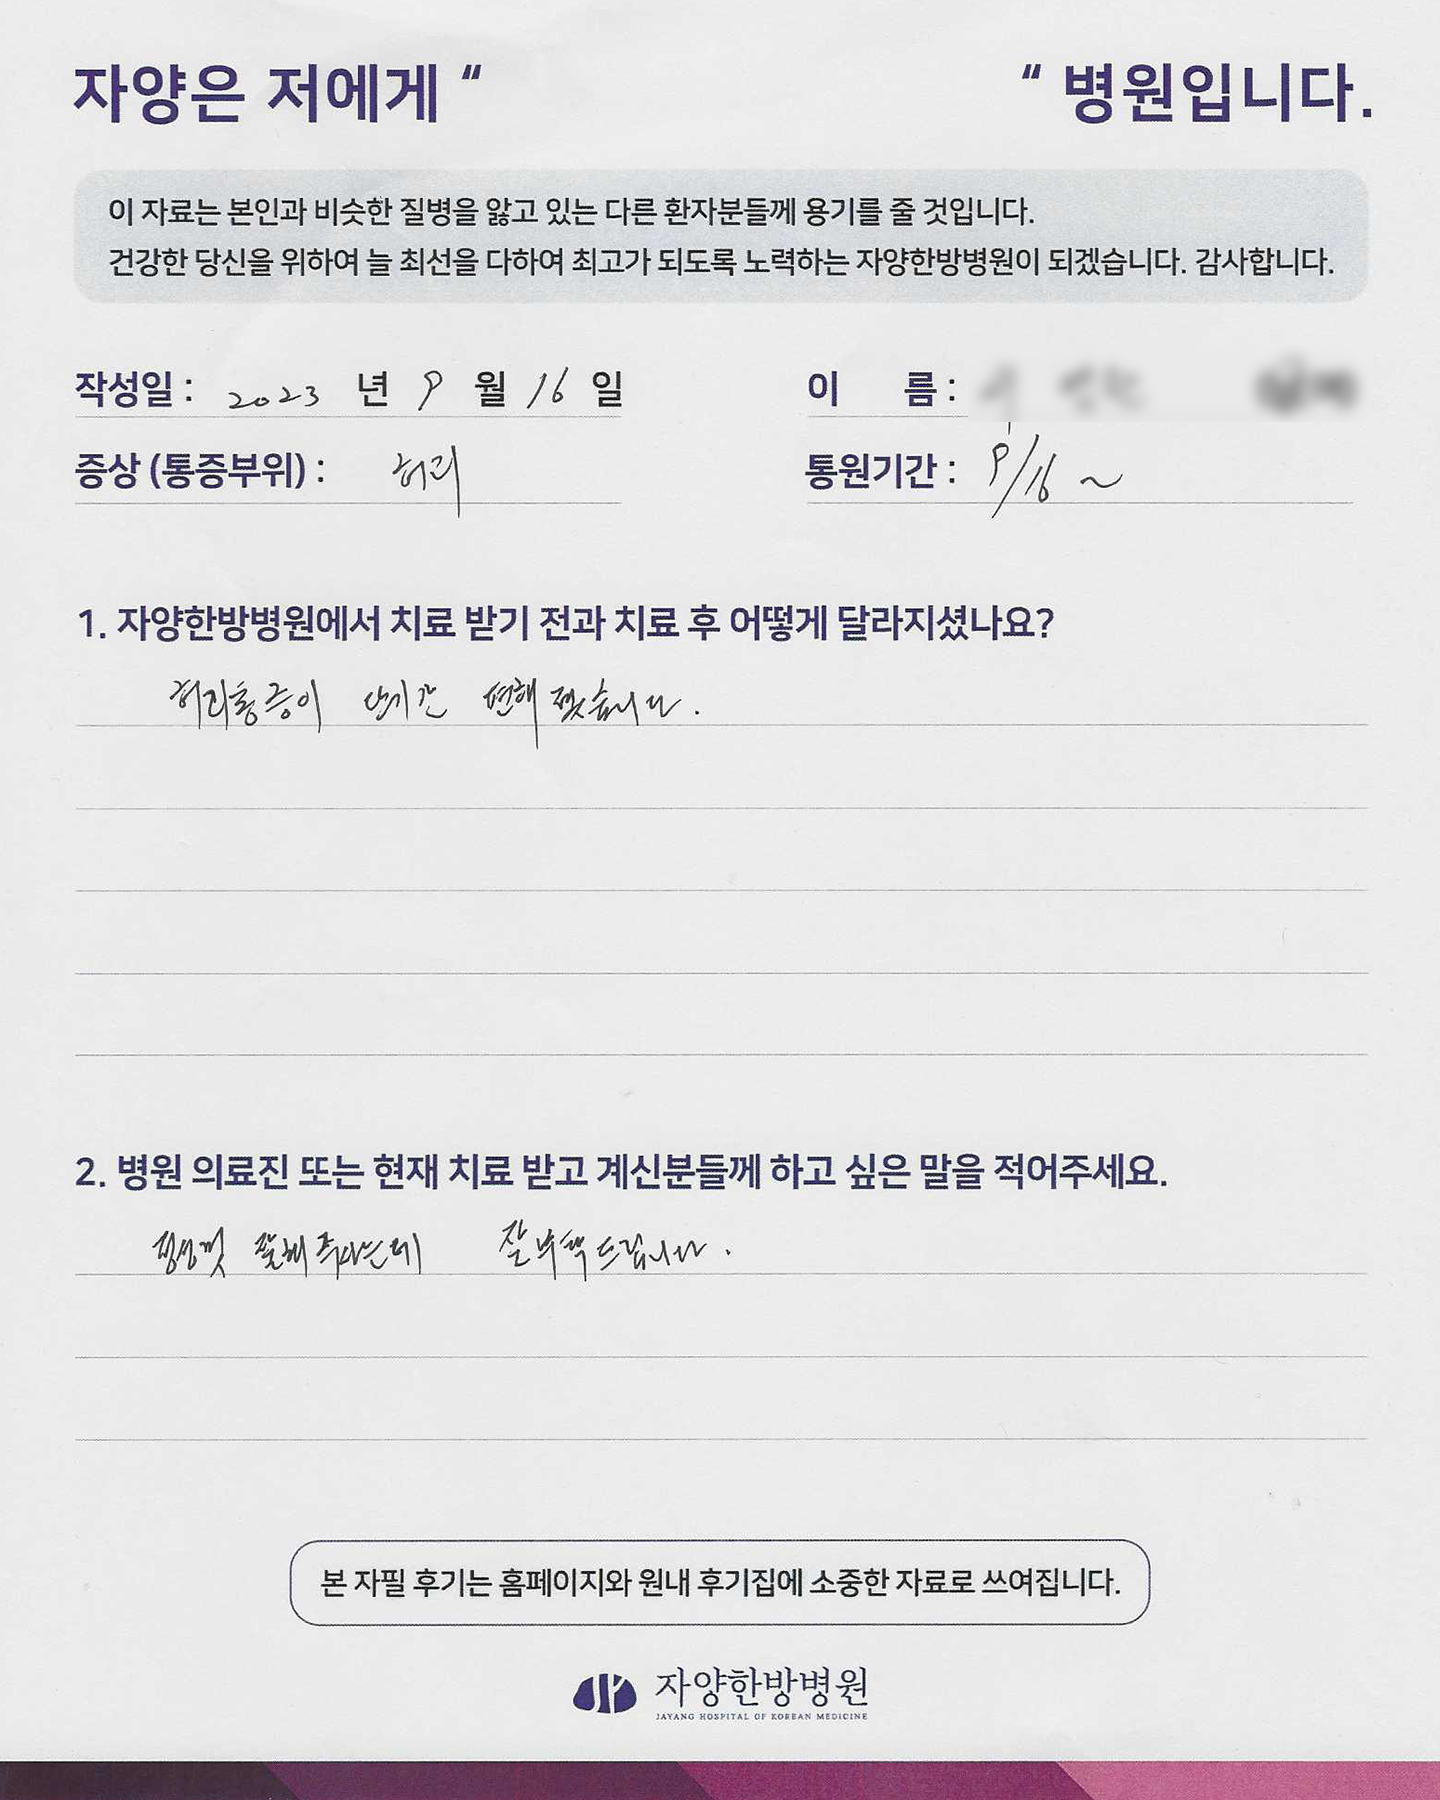 자양은 저에게 “ “ 병원입니다.
이 자료는 본인과 비슷한 질병을 앓고 있는 다른 환자분들께 용기를 줄 것입니다.
건강한 당신을 위하여 늘 최선을 다하여 최고가 되도록 노력하는 자양한방병원이 되겠습니다. 감사합니다.
작성일 : 2023 년 9 월 16 일 이 름 :
증상 (통증부위) : 허리 통원기간 : 9/16 ~
1. 자양한방병원에서 치료 받기 전과 치료 후 어떻게 달라지셨나요?
허리통증이 단기간 편해졌습니다.
2. 병원 의료진 또는 현재 치료 받고 계신분들께 하고 싶은 말을 적어주세요.
정성껏 잘해주시는데 잘 부탁드립니다.
본 자필 후기는 홈페이지와 원내 후기집에 소중한 자료로 쓰여집니다.
자양한방병원
JAYANG HOSPITAL OF KOREAN MEDICINE